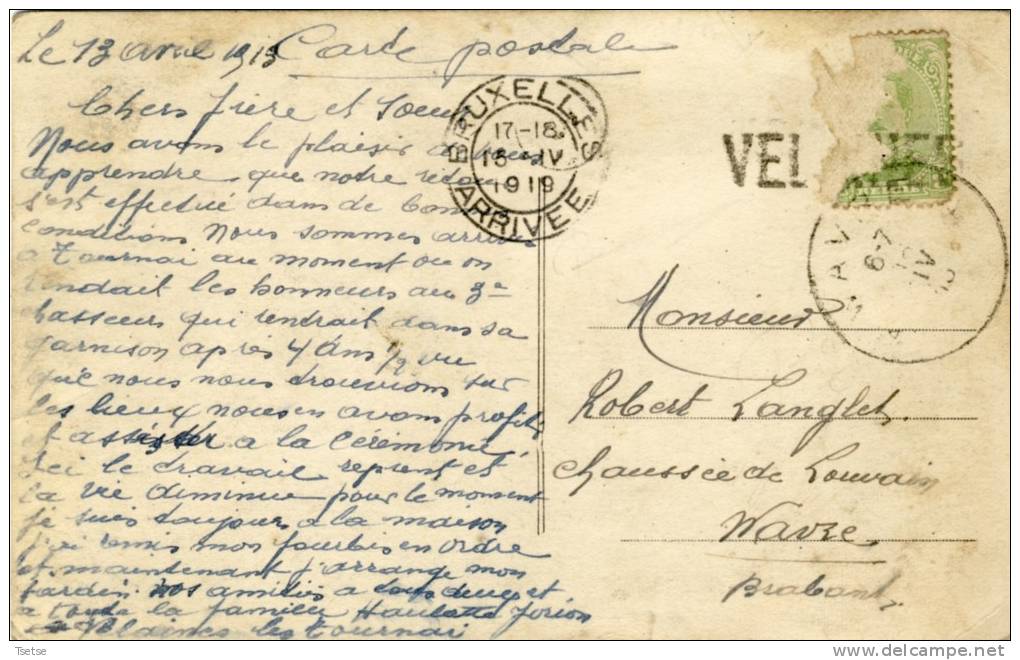 Le 13 avril 1919 Carte postale
Chers frère et Soeur
Nous avons le plaisir de vous
apprendre que notre retour
s'est effectué dans de bonnes
Conditions Nous sommes arrivés
a Tournai au moment ou on
rendait les honneurs au 3e
chasseurs qui rentrait dans sa
garnison après 4 Ans 1/2 vu
que nous nous trouvions sur
les lieux nous en avons profité
et assister a la Cérémonie,
Ici le travail reprent et
la vie diminue pour le moment
je suis toujours a la maison
j'ai remis mon fourbis en ordre
et maintenant j'arrange mon
jardin nos amitiés a tous deux et
a toute la famille Haulotte Jorion
Blaines les Tournai
BRUXELLES
17-18
16 IV
1919
ARRIVEE
VEL
WAVRE
6-7
IV
Monsieur
Robert Langlet
chaussée de Louvain
Wavre
Brabant
Tsetse
www.delcampe.net